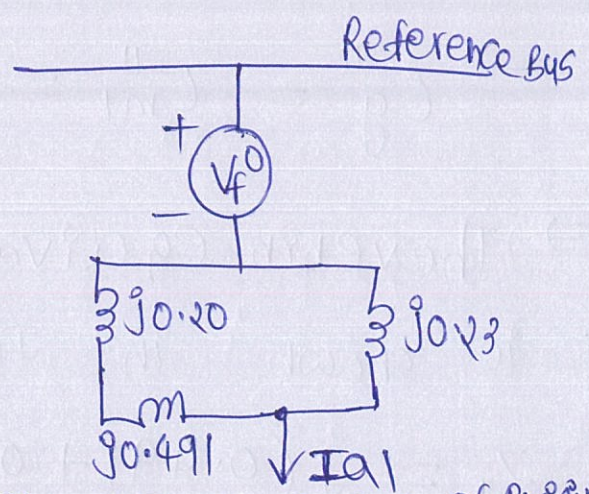 Reference Bus
+
Vf⁰
−
j0.20
j0.23
j0.491
Ia1